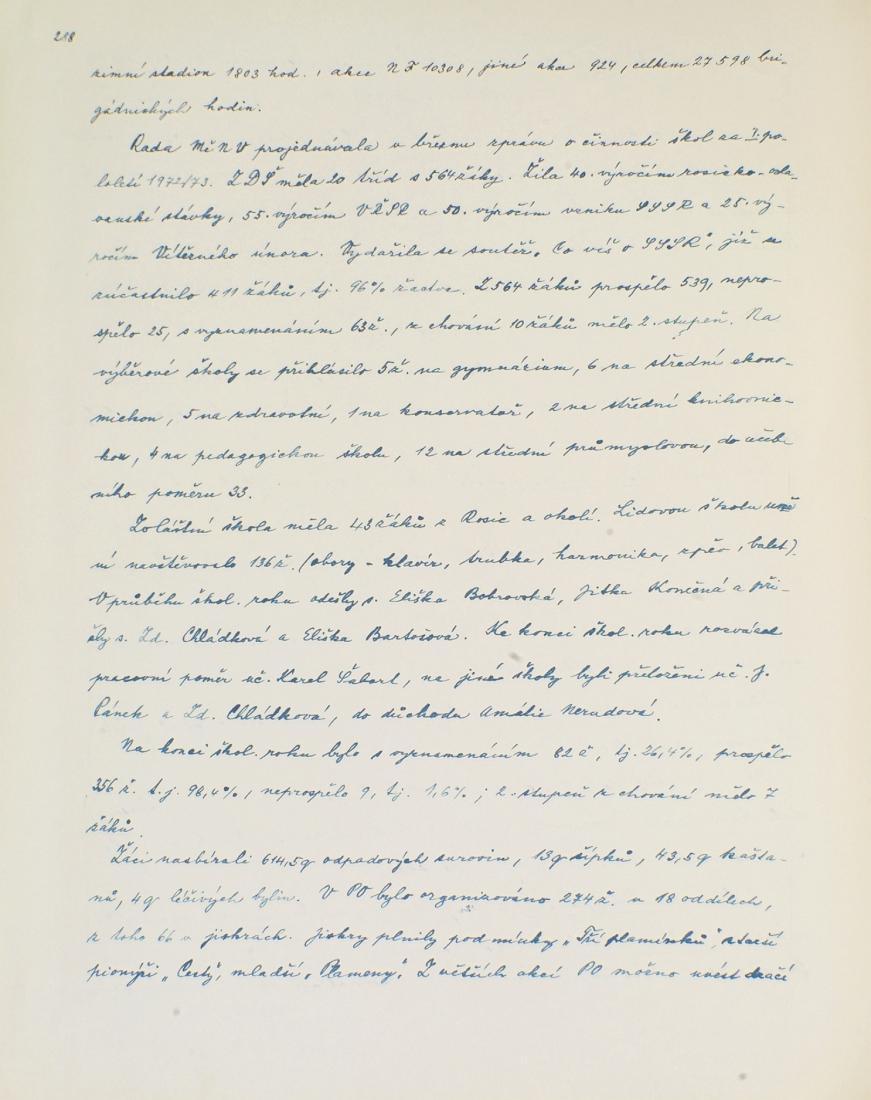 218
zimní stadion 1803 hod., akce NF 10308, jiné akce 924, celkem 27 598 bri-
gádnických hodin.
Rada MěNV projednávala v březnu zprávu o činnosti škol za I. po-
loletí 1972/73. ZDŠ měla 20 tříd s 564 žáky. Žila 40. výročím rosicko-osla-
vanské stávky, 55. výročím VŘSR a 50. výročím vzniku SSSR a 25. vý-
ročím Vítězného února. Vydařila se soutěž „Co víš o SSSR“, jíž se
zúčastnilo 411 žáků, tj. 96% žactva. Z 564 žáků prospělo 539, nepro-
spělo 25, s vyznamenáním 63 ž., z chování 10 žáků mělo 2. stupeň. Na
výběrové školy se přihlásilo 5 ž. na gymnázium, 6 na střední ekono-
mickou, 5 na zdravotní, 1 na konservatoř, 2 na střední knihovnic-
kou, 4 na pedagogickou školu, 12 na střední průmyslovou, do učeb-
ního poměru 33.
Zvláštní škola měla 43 žáků z Rosic a okolí. Lidovou školu umě
ní navštěvovalo 136 ž. (obory - klavír, trubka, harmonika, zpěv, balet).
V průběhu škol. roku odešly s. Eliška Bobrovská, Jitka Konečná a při-
šly s. Zd. Chládková a Eliška Bartošová. Ke konci škol. roku rozvázal
pracovní poměr uč. Karel Šabart, na jiné školy byli přeloženi uč. J.
Pánek a Zd. Chládková, do důchodu Amálie Nerudová.
Na konci škol. roku bylo s vyznamenáním 82 ž, tj. 26,4%, prospělo
356 ž. t.j. 98,4%, neprospělo 9, tj. 1,6%; 2. stupeň z chování mělo 7
žáků.
Žáci nasbírali 614,5 q odpadových surovin, 13 q šípků, 43,5 q kašta-
nů, 4 q léčivých bylin. V PO bylo organizováno 274 ž. v 18 oddílech,
z toho 66 v jiskrách. Jiskry plnily podmínky „Tří plamínků“, starší
pionýři „Cesty“, mladší „Plameny“. Z větších akcí PO možno uvést dračí